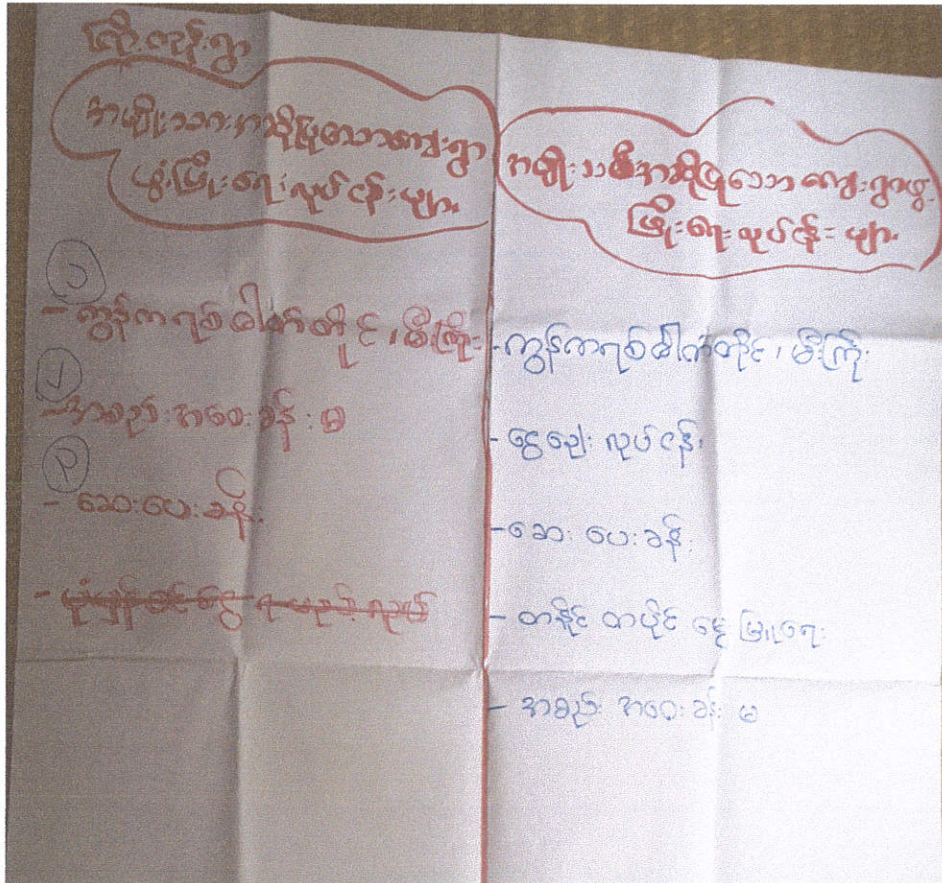 ကြိုးကုန်းရွာ
အမျိုးသားအဆိုပြုသောကျေးရွာ
ဖွံ့ဖြိုးရေးလုပ်ငန်းများ
၁
- ကွန်ကရစ်ဓါတ်တိုင်၊ မီးကြိုး
၂
- အစည်းအဝေးခန်းမ
၃
- ဆေးပေးခန်း
-
အမျိုးသမီးအဆိုပြုသော ကျေးရွာဖွံ့
ဖြိုးရေးလုပ်ငန်းများ
- ကွန်ကရစ်ဓါတ်တိုင်၊ မီးကြိုး
- ငွေချေးလုပ်ငန်း
- ဆေးပေးခန်း
- တနိုင်တပိုင်မွေးမြူရေး
- အစည်းအဝေးခန်းမ